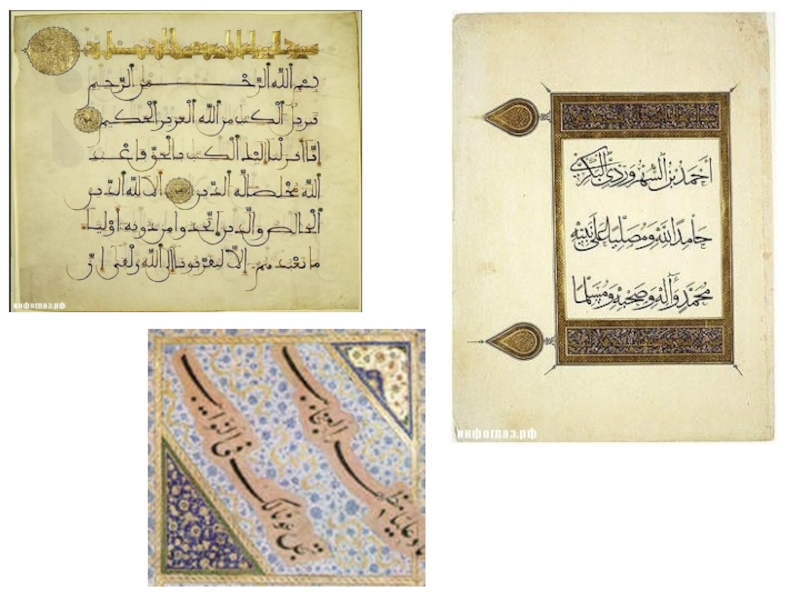 بسم الله الرحمن الرحيم
تنزيل الكتب من الله العزيز الحكيم
انا انزلنا اليك الكتب بالحق فاعبد
الله مخلصا له الدين الا لله الدين
الخالص والذين اتخذوا من دونه اوليا
ما نعبدهم الا ليقربونا الى الله زلفى ان
инфоглаз.рф
أحمد بن السهروردي البكري
حامدا لله ومصليا على نبيه
محمد وآله وصحبه ومسلما
инфоглаз.рф
عليا مظهر العجايب
تجده عونا لك في النوايب